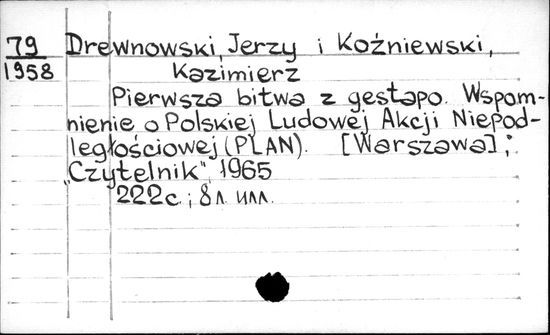 79
1958
Drewnowski, Jerzy i Koźniewski,
Kazimierz
Pierwsza bitwa z gestapo. Wspom-
nienie o Polskiej Ludowej Akcji Niepod-
ległościowej (PLAN). [Warszawa];
„Czytelnik", 1965
222с.; 8л. илл.